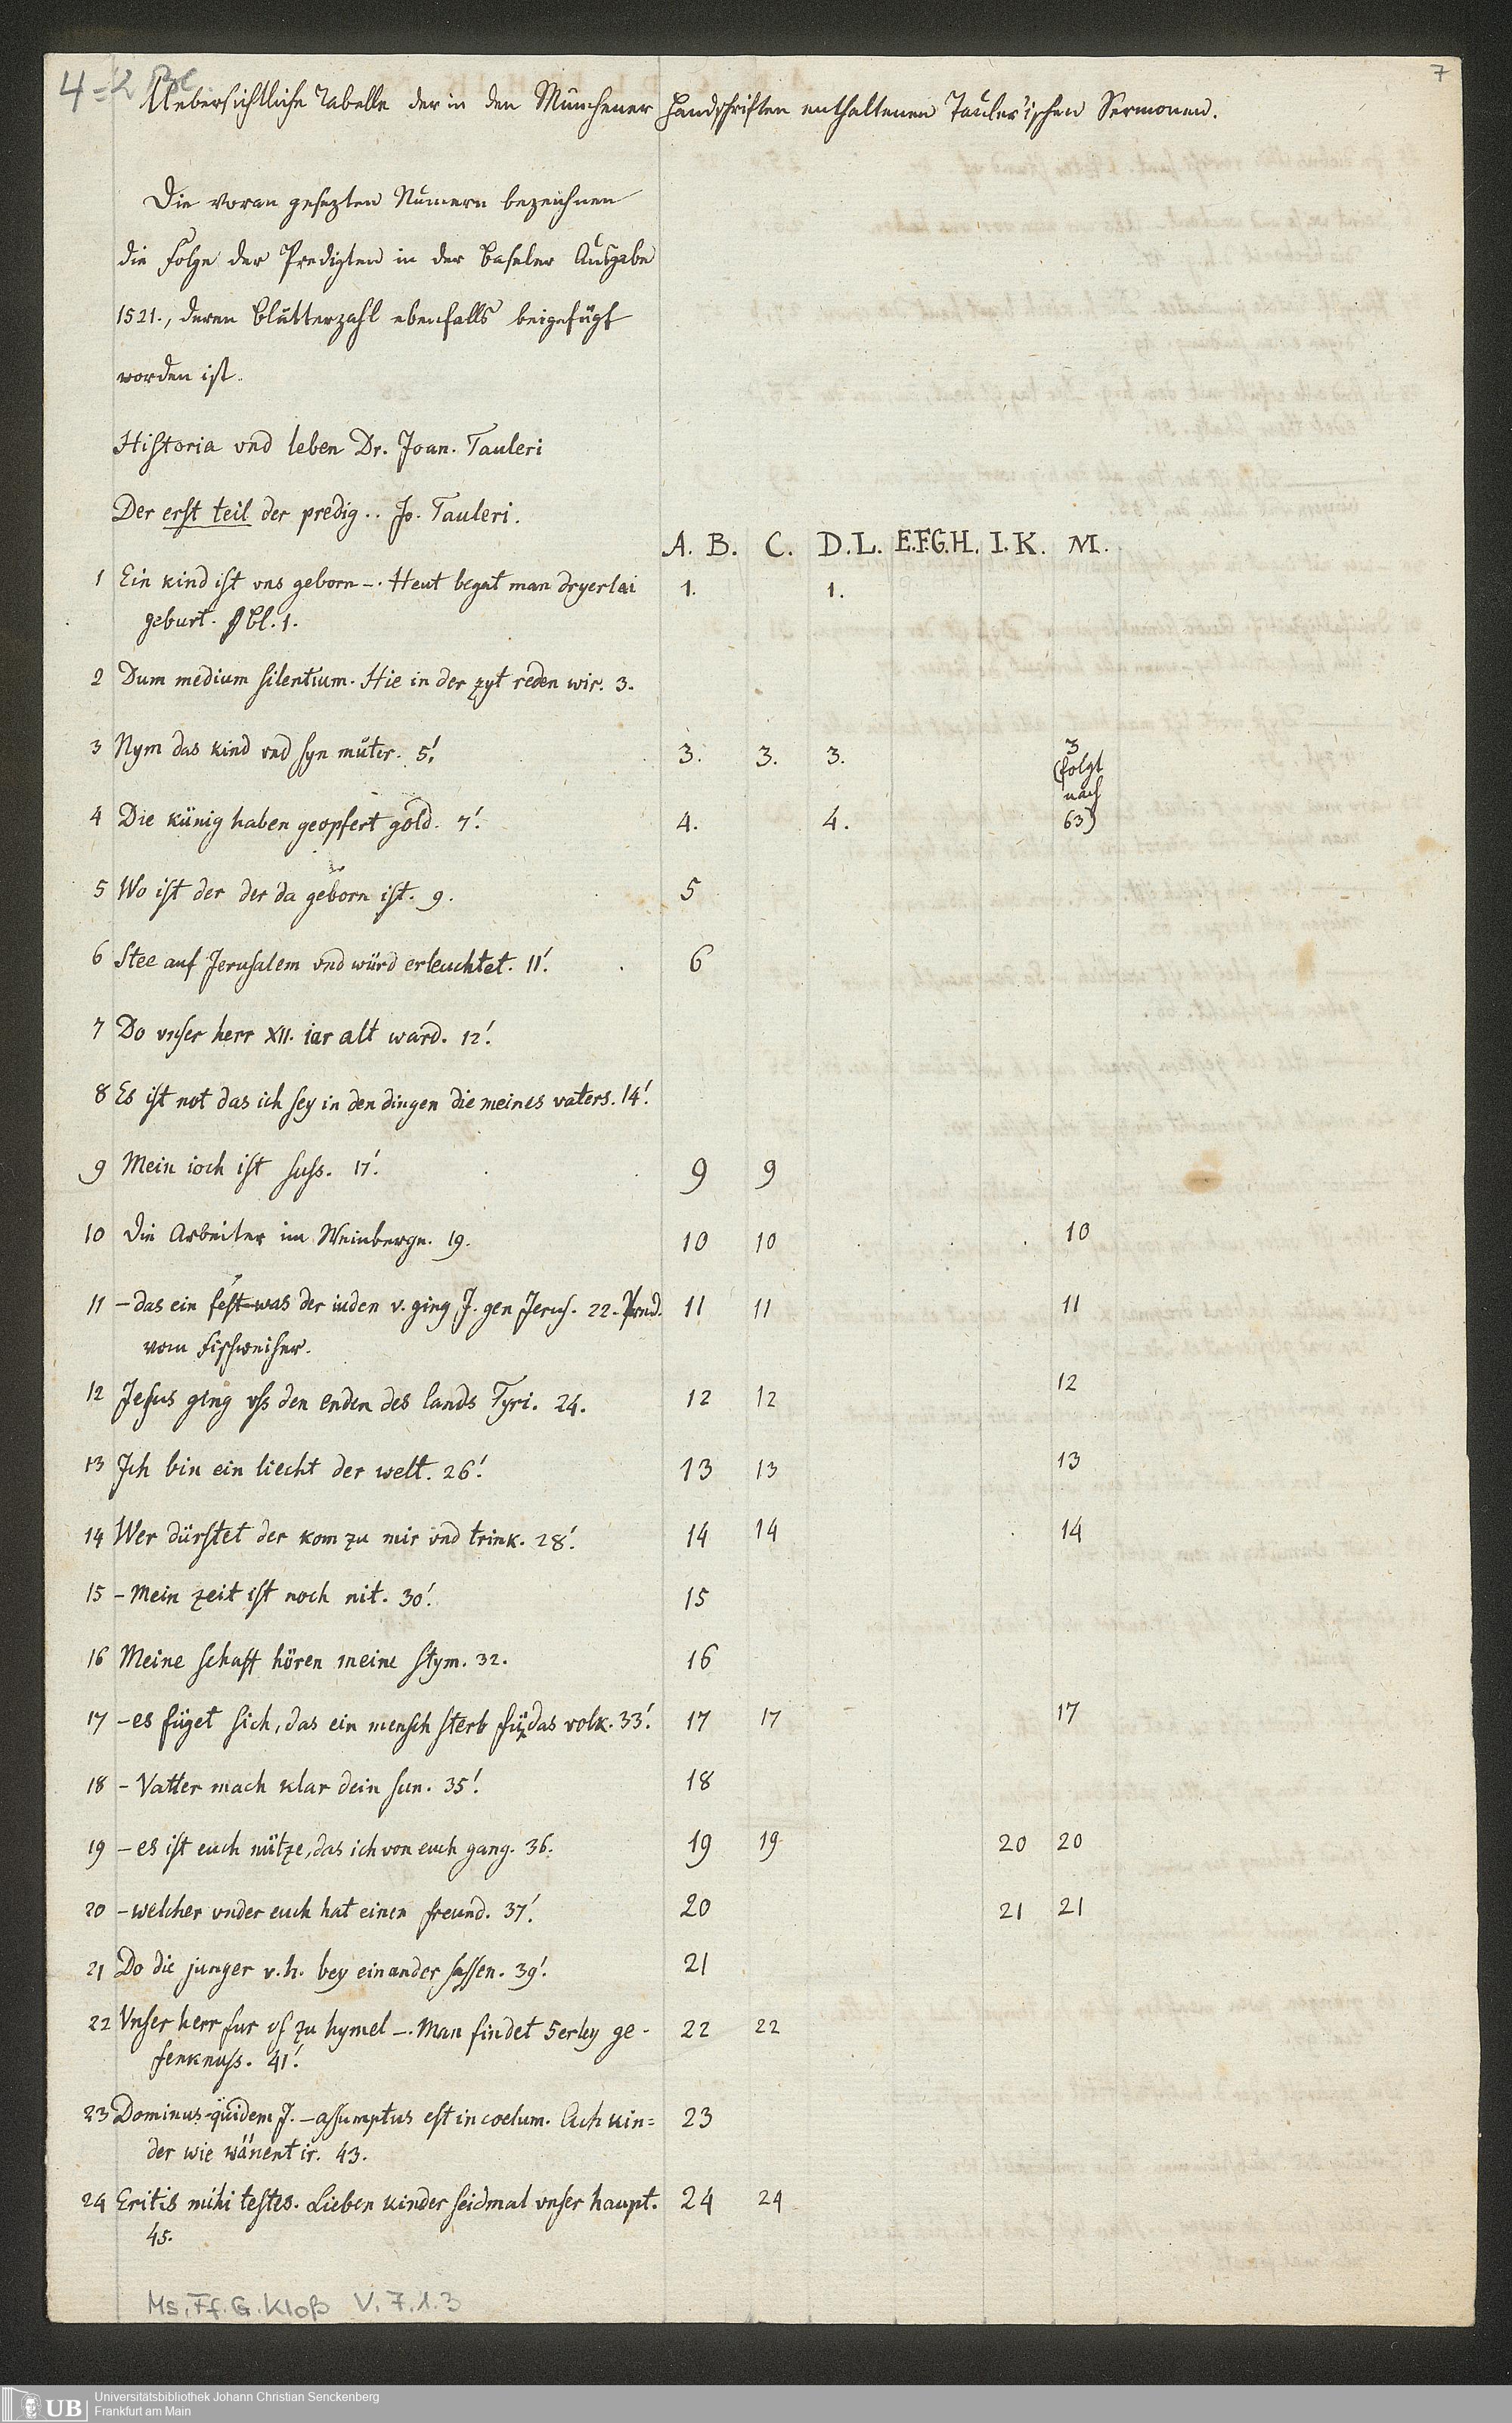 4 = 2
7
Uebersichtliche Tabelle der in den Münchener Handschriften enthaltenen Tauler'ischen Sermonen.
Die voran gesezten Numern bezeichnen
die Folge der Predigten in der Baseler Ausgabe
1521., deren Blätterzahl ebenfalls beigefügt
worden ist.
Historia vnd leben Dr. Joan. Tauleri
Der erst teil der predig.. Jo. Tauleri.
A. B. C. D. L. E. F. G. H. I. K. M.
1 Ein kind ist vns geborn -. Heut begat man dryerlai 1. 1.
geburt. bl. 1.
2 Dum medium silentium. Hie in der zyt reden wir. 3.
3 Nym das kind vnd syn můter. 5'. 3. 3. 3. 3
(folgt
nach
63)
4 Die künig haben geopfert gold. 7'. 4. 4.
5 Wo ist der der da geborn ist. 9. 5
6 Stee auf Jerusalem vnd würd erleuchtet. 11'. 6
7 Do vnser herr XII. iar alt ward. 12'.
8 Es ist not das ich sey in den dingen die meines vaters. 14'.
9 Mein ioch ist suss. 17'. 9 9
10 Die Arbeiter im Weinberge. 19. 10 10 10
11 – das ein fest was der iuden v. ging J. gen Jerus. 22. Pred. 11 11 11
vom Fischweiher.
12 Jesus ging vss den enden des lands Tyri. 24. 12 12 12
13 Ich bin ein liecht der welt. 26'. 13 13 13
14 Wer dürstet der kom zu mir vnd trink. 28'. 14 14 14
15 – Mein zeit ist noch nit. 30'. 15
16 Meine schaff hören meine stym. 32. 16
17 – es füget sich, das ein mensch sterb für das volk. 33'. 17 17 17
18 – Vatter mach klar dein sun. 35'. 18
19 – es ist euch nütze, das ich von euch gang. 36. 19 19 20 20
20 – welcher vnder euch hat einen freund. 37'. 20 21 21
21 Do die junger v. h. bey einander sassen. 39'. 21
22 Vnser herr fur vf zu hymel –. Man findet 5erley ge- 22 22
fenknuss. 41'.
23 Dominus quidem J. – assumptus est in coelum. Ach kin= 23
der wie wänent ir. 43.
24 Eritis mihi testes. Lieben kinder seidmal vnser haupt. 24 24
45.
Ms. Ff. G. Kloß V. 7. 1. 3
UB
Universitätsbibliothek Johann Christian Senckenberg
Frankfurt am Main